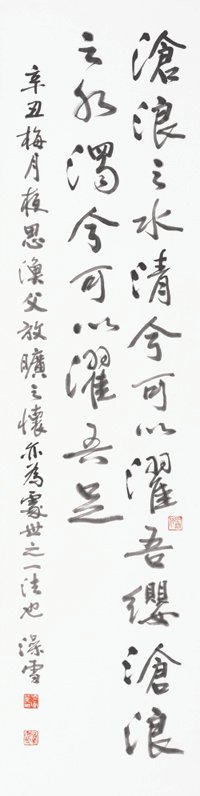 滄浪之水清兮可以濯吾纓滄浪
之水濁兮可以濯吾足
辛丑梅月夜思漁父放曠之懷亦為處世之一法也 澡雪